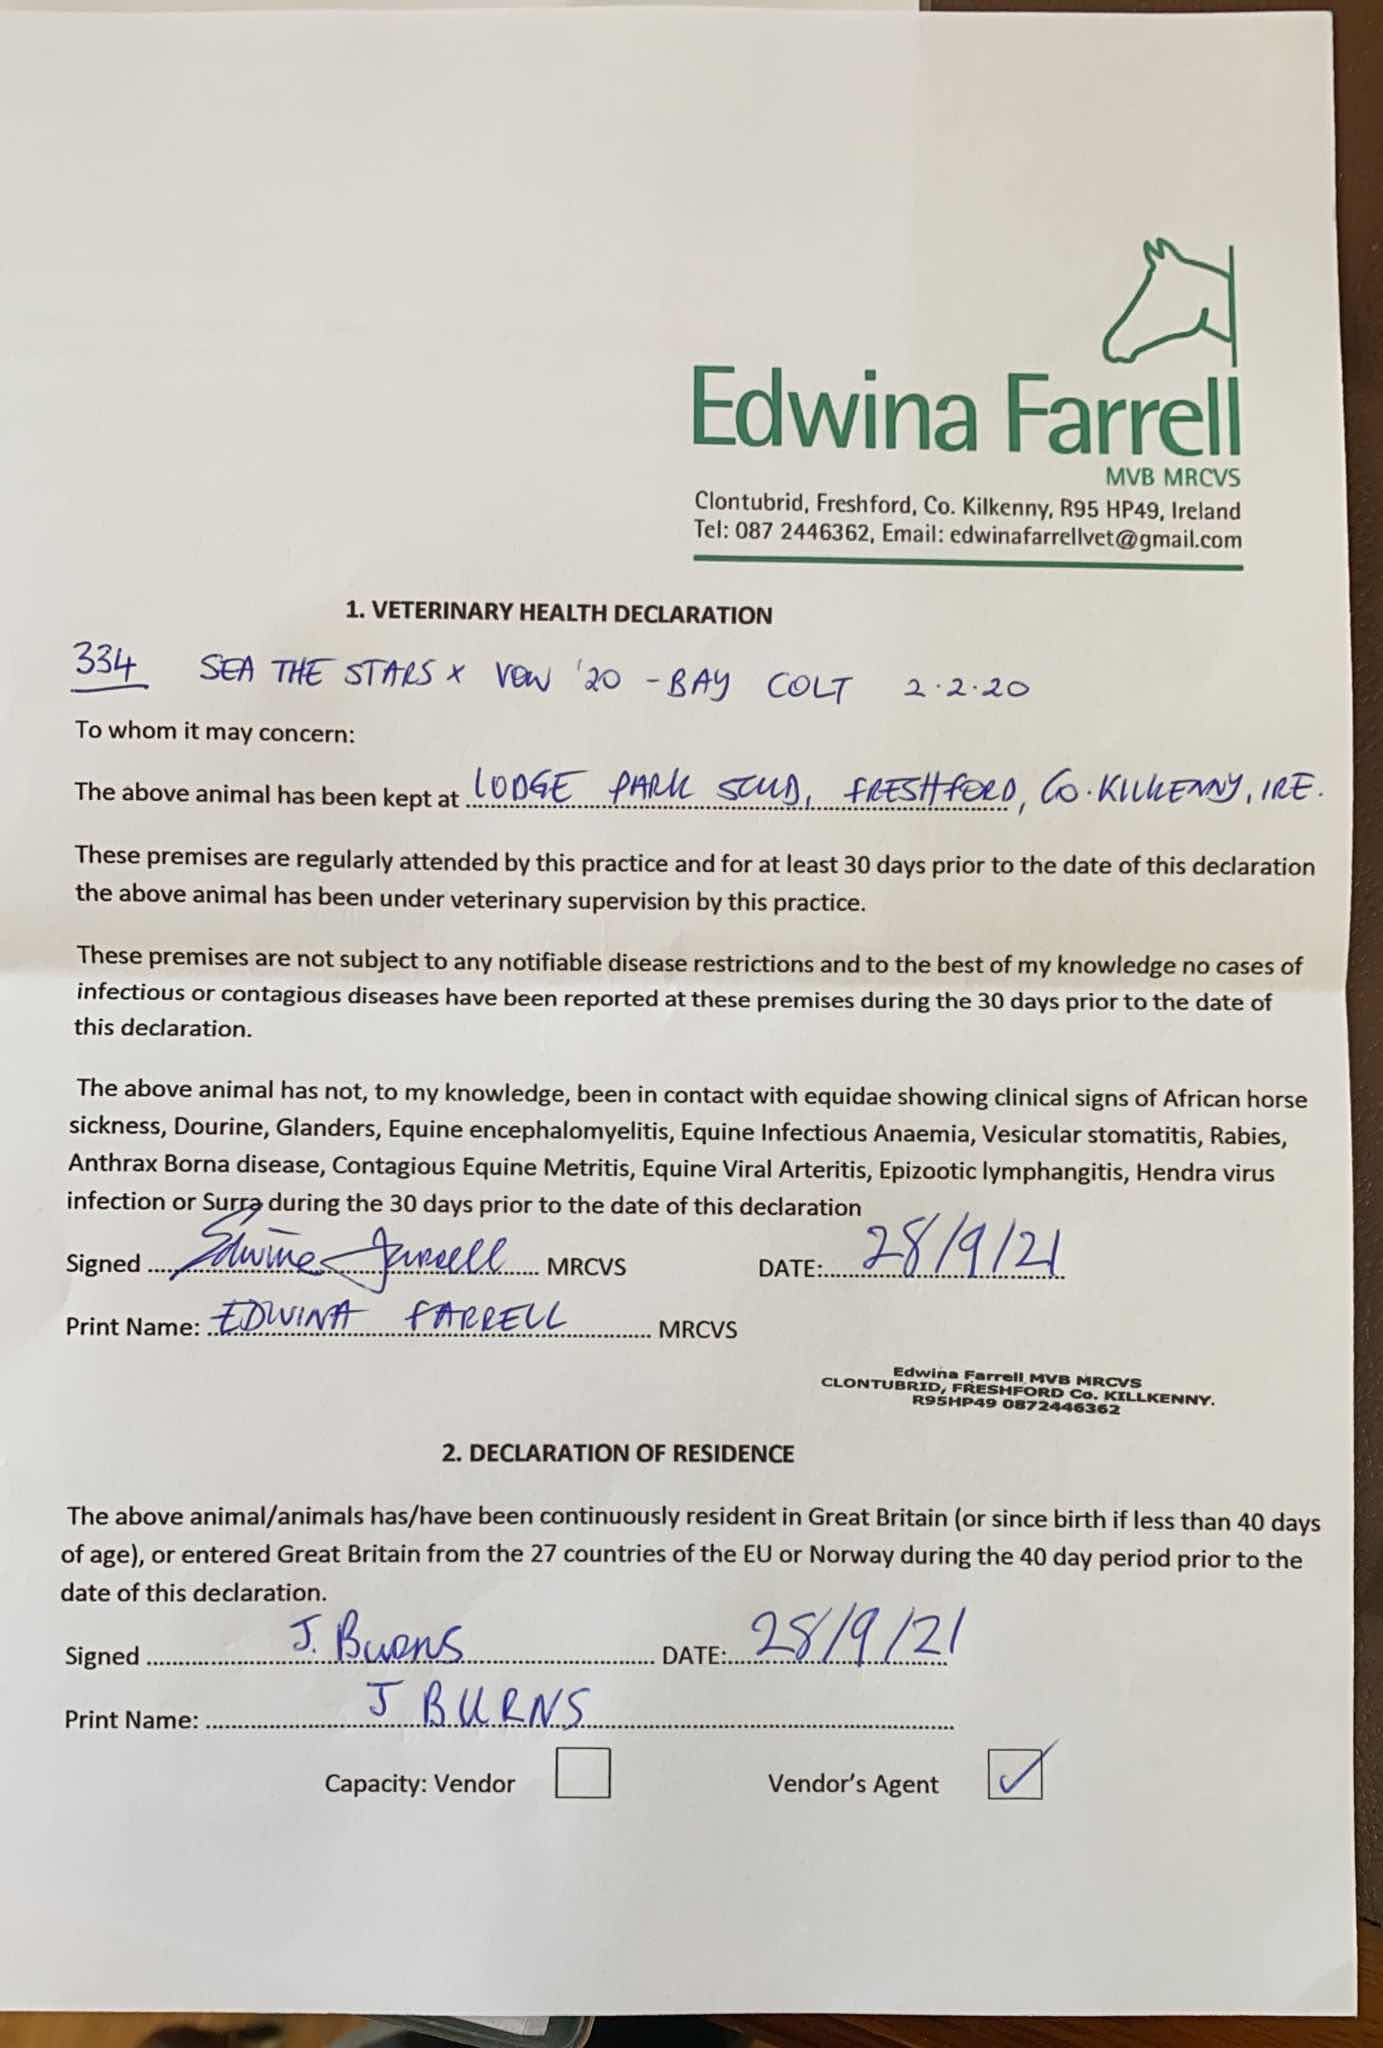 Edwina Farrell
MVB MRCVS
Clontubrid, Freshford, Co. Kilkenny, R95 HP49, Ireland
Tel: 087 2446362, Email: edwinafarrellvet@gmail.com
1. VETERINARY HEALTH DECLARATION
334 SEA THE STARS X VOW '20 - BAY COLT 2.2.20
To whom it may concern:
The above animal has been kept at LODGE PARK STUD, FRESHFORD, Co. KILKENNY, IRE.
These premises are regularly attended by this practice and for at least 30 days prior to the date of this declaration
the above animal has been under veterinary supervision by this practice.
These premises are not subject to any notifiable disease restrictions and to the best of my knowledge no cases of
infectious or contagious diseases have been reported at these premises during the 30 days prior to the date of
this declaration.
The above animal has not, to my knowledge, been in contact with equidae showing clinical signs of African horse
sickness, Dourine, Glanders, Equine encephalomyelitis, Equine Infectious Anaemia, Vesicular stomatitis, Rabies,
Anthrax Borna disease, Contagious Equine Metritis, Equine Viral Arteritis, Epizootic lymphangitis, Hendra virus
infection or Surra during the 30 days prior to the date of this declaration
Signed Edwina Farrell MRCVS DATE: 28/9/21
Print Name: EDWINA FARRELL MRCVS
Edwina Farrell MVB MRCVS
CLONTUBRID, FRESHFORD Co. KILLKENNY.
R95HP49 0872446362
2. DECLARATION OF RESIDENCE
The above animal/animals has/have been continuously resident in Great Britain (or since birth if less than 40 days
of age), or entered Great Britain from the 27 countries of the EU or Norway during the 40 day period prior to the
date of this declaration.
Signed J. Burns DATE: 28/9/21
Print Name: J BURNS
Capacity: Vendor Vendor's Agent ✓